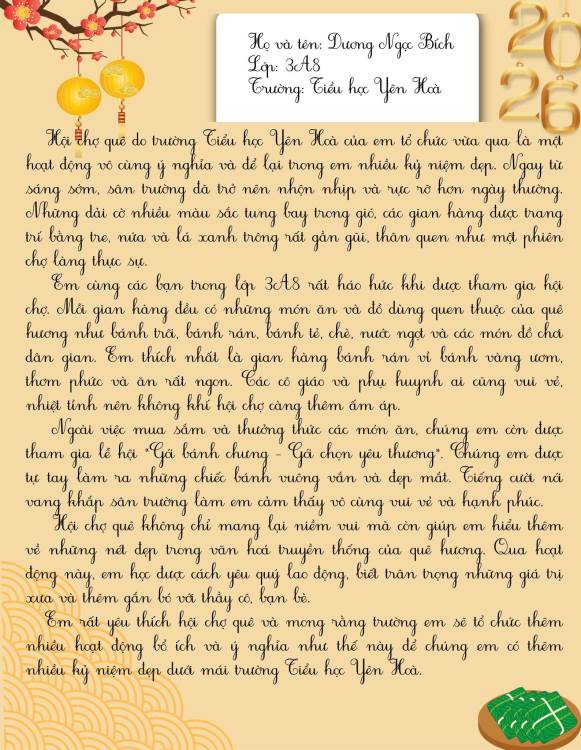 2026
Họ và tên: Dương Ngọc Bích
Lớp: 3A8
Trường: Tiểu học Yên Hoà
Hội chợ quê do trường Tiểu học Yên Hoà của em tổ chức vừa qua là một
hoạt động vô cùng ý nghĩa và để lại trong em nhiều kỷ niệm đẹp. Ngay từ
sáng sớm, sân trường đã trở nên nhộn nhịp và rực rỡ hơn ngày thường.
Những dải cờ nhiều màu sắc tung bay trong gió, các gian hàng được trang
trí bằng tre, nứa và lá xanh trông rất gần gũi, thân quen như một phiên
chợ làng thực sự.
Em cùng các bạn trong lớp 3A8 rất háo hức khi được tham gia hội
chợ. Mỗi gian hàng đều có những món ăn và đồ dùng quen thuộc của quê
hương như bánh trôi, bánh rán, bánh tẻ, chè, nước ngọt và các món đồ chơi
dân gian. Em thích nhất là gian hàng bánh rán vì bánh vàng ươm,
thơm phức và ăn rất ngon. Các cô giáo và phụ huynh ai cũng vui vẻ,
nhiệt tình nên không khí hội chợ càng thêm ấm áp.
Ngoài việc mua sắm và thưởng thức các món ăn, chúng em còn được
tham gia lễ hội "Gói bánh chưng - Gói chọn yêu thương". Chúng em được
tự tay làm ra những chiếc bánh vuông vắn và đẹp mắt. Tiếng cười nói
vang khắp sân trường làm em cảm thấy vô cùng vui vẻ và hạnh phúc.
Hội chợ quê không chỉ mang lại niềm vui mà còn giúp em hiểu thêm
về những nét đẹp trong văn hoá truyền thống của quê hương. Qua hoạt
động này, em học được cách yêu quý lao động, biết trân trọng những giá trị
xưa và thêm gắn bó với thầy cô, bạn bè.
Em rất yêu thích hội chợ quê và mong rằng trường em sẽ tổ chức thêm
nhiều hoạt động bổ ích và ý nghĩa như thế này để chúng em có thêm
nhiều kỷ niệm đẹp dưới mái trường Tiểu học Yên Hoà.